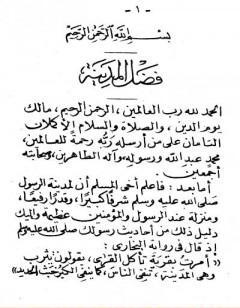 - ١ -
بسم الله الرحمن الرحيم
فضل المدينة
الحمد لله رب العالمين، الرحمن الرحيم، مالك
يوم الدين، والصلاة والسلام الأكملان
التامان على من أرسله ربه رحمة للعالمين،
محمد عبد الله ورسوله، وآله الطاهرين، وصحابته
أجمعين.
أما بعد: فاعلم أخي المسلم أن لمدينة الرسول
صلى الله عليه وسلم شرفًا كبيرًا، وقدرًا رفيعًا،
ومنزلة عند الرسول والمؤمنين عظيمة، وإليك
دليل ذلك من أحاديث رسولك صلى الله عليه وسلم
إذ قال في رواية البخاري:
«أمرت بقرية تأكل القرى، يقولون يثرب
وهي المدينة، تنفي الناس، كما ينفي الكير خبث الحديد»